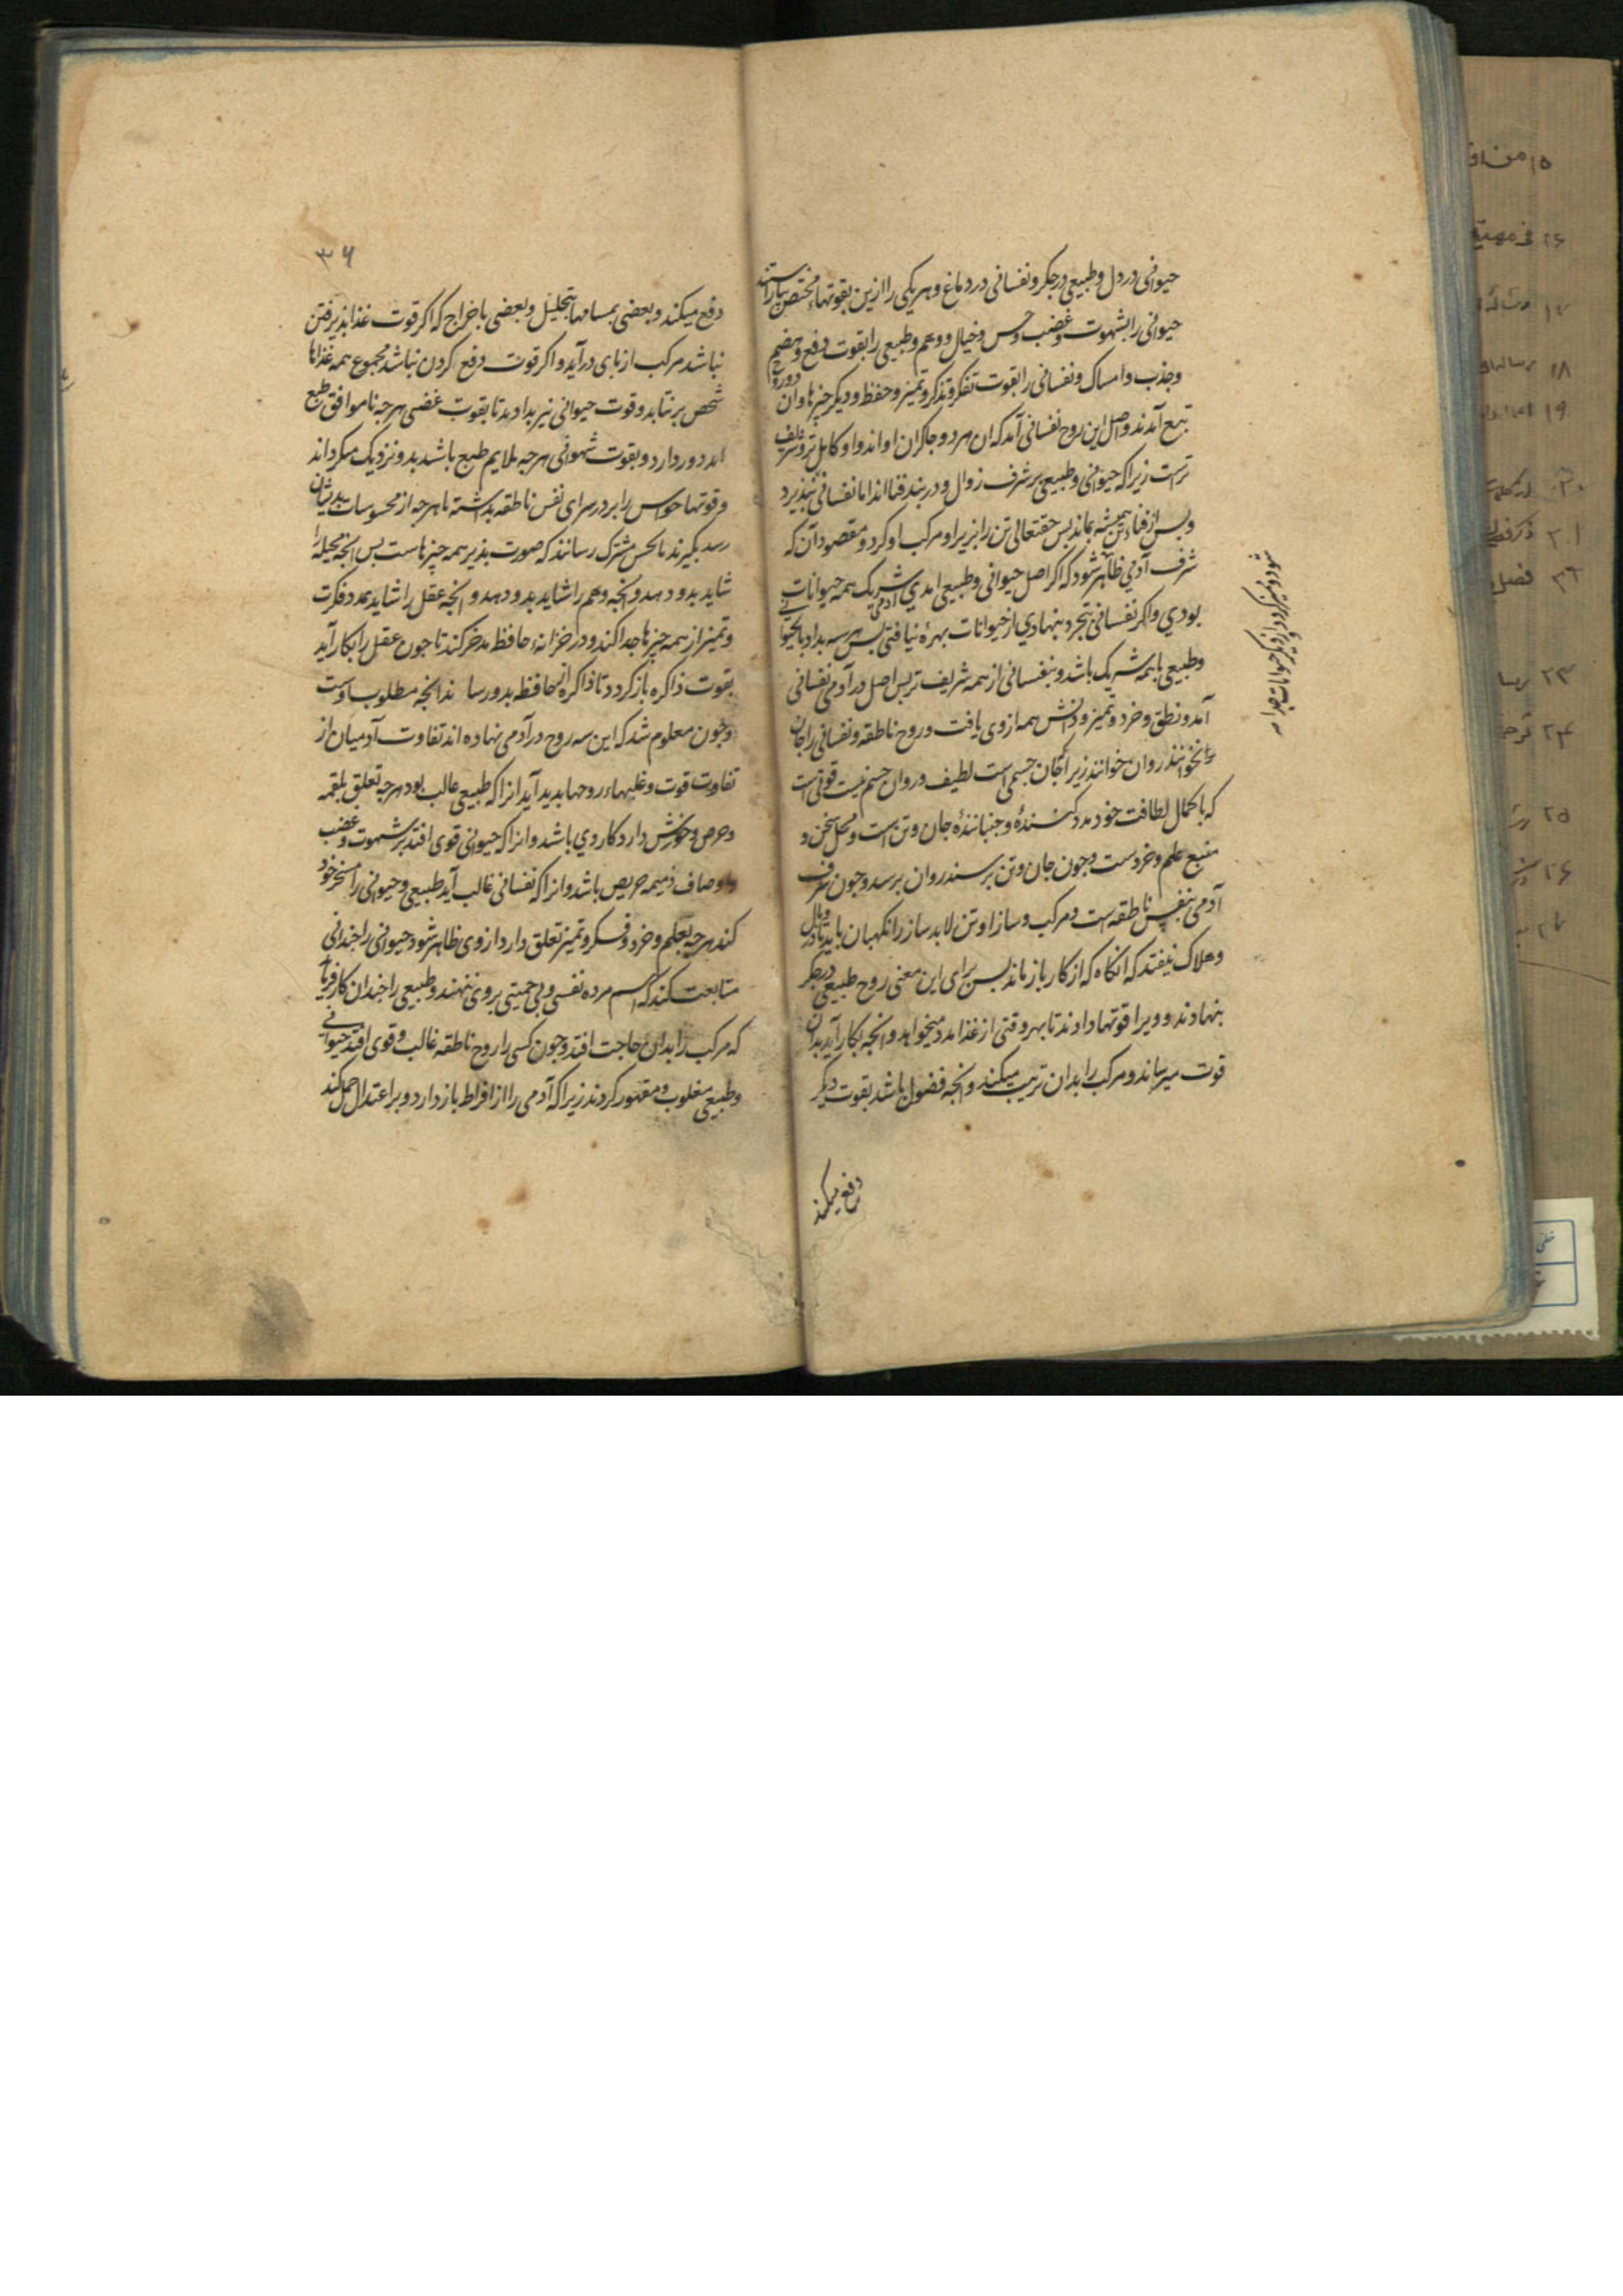 حیوانی در دل و طبیعی در جکر و نفسانی در دماغ و هر یکی را ازین بقوتهاء مختص بیاراستند
حیوانی را بشهوت و غضب و حس و خیال و وهم و طبیعی را بقوت دفع و هضم
و جذب و امساک و نفسانی را بقوت تفکر و تذکر و تمیز و حفظ و دیکر چیزها و آن دو روح
تبع آمدند و اصل این روح نفسانی آمد که ان هر دو چاکران او اند و او کامل تر و شریف
ترست زیرا که حیوانی و طبیعی بر شرف زوال و در بند فنا اند اما نفسانی نپذیرد
و پس از فناء تن همیشه بماند پس حقتعالی تن را بزیر او مرکب او کرد و مقصود آن که
شرف آدمی ظاهر شود که اکر اصل حیوانی و طبیعی امدی آدمی شریک همه حیوانات
بودی و اکر نفسانی بتجرد بنهادی از حیوانات بهرۀ نیافتی پس هر سه بداد تا بحیوانی
و طبیعی با همه شریک باشد و بنفسانی از همه شریف تر پس اصل در آدمی نفسانی
آمد و نطق و خرد و تمیز و دانش همه از وی یافت و روح ناطقه و نفسانی را جان
نخوانند روان خوانند زیرا که جان جسمی است لطیف و روان جسم نیست قوتی است
که با کمال لطافت خود مدد کنندۀ و جنبانندۀ جان و تن است و محل سخن و
منبع علم و خردست و چون جان و تن برسند روان برسد و چون شرف
آدمی بنفس ناطقه است و مرکب و ساز او تن لابد ساز را نکهبان باید تا در وبال
و هلاک نیفتد که انکاه که از کار باز ماند پس برای این معنی روح طبیعی در جکر
بنهادند و ویرا قوتها دادند تا بهر وقتی از غذا مدد میخواهد و انجه بکار آید بدان
قوت میرساند و مرکب را بدان تربیت میکند و انجه فضول باشد بقوت دیکر
دفع میکند
۳۶
دفع میکند و بعضی بمسامها بتحلیل و بعضی باخراج که اکر قوت غذا پذیرفتن
نباشد مرکب از پای درآید و اکر قوت دفع کردن نباشد مجموع همه غذاها
شخص برنتابد و قوت حیوانی نیز بداد بدو تا بقوت غضبی هرچه ناموافق طبع
امد دور دارد و بقوت شهوانی هرچه ملایم طبع باشد بدو نزدیک میکرداند
و قوتها حواس را بر در سرای نفس ناطقه بداشته تا هرچه از محسوسات بدیشان
رسد بکیرند تا بحس مشترک رسانند که صورت پذیر همه چیزهاست پس انجه مخیله را
شاید بدو دهد و انجه وهم را شاید بدو دهد و انجه عقل را شاید بمدد فکرت
و تمیز از همه چیزها جدا کند و در خزانهء حافظ مدخر کند تا چون عقل را بکار آید
بقوت ذاکره باز کردد تا ذاکره از حافظ بدو رساند انجه مطلوب اوست
و چون معلوم شد که این سه روح در آدمی نهاده اند تفاوت آدمیان از
تفاوت قوت و غلبهاء روحها پدید آید انرا که طبیعی غالب بود هرچه تعلق بلقمه
و حرص و خورش دارد کار وی باشد و انرا که حیوانی قوی افتد بر شهوت و غضب
و اوصاف ذمیمه حریص باشد و انرا که نفسانی غالب آید طبیعی و حیوانی را مسخر خود
کند هرچه بعلم و خرد و فکر و تمیز تعلق دارد از وی ظاهر شود حیوانی را چندانی
متابعت کند که اسم مرده نفسی و بی حمیتی بر وی ننهند و طبیعی را چندان کار فرماید
که مرکب را بدان حاجت افتد و چون کسی را روح ناطقه غالب و قوی افتد حیوانی
و طبیعی مغلوب و مقهور کردند زیرا که آدمی را از افراط باز دارد و بر اعتدال حمل کند